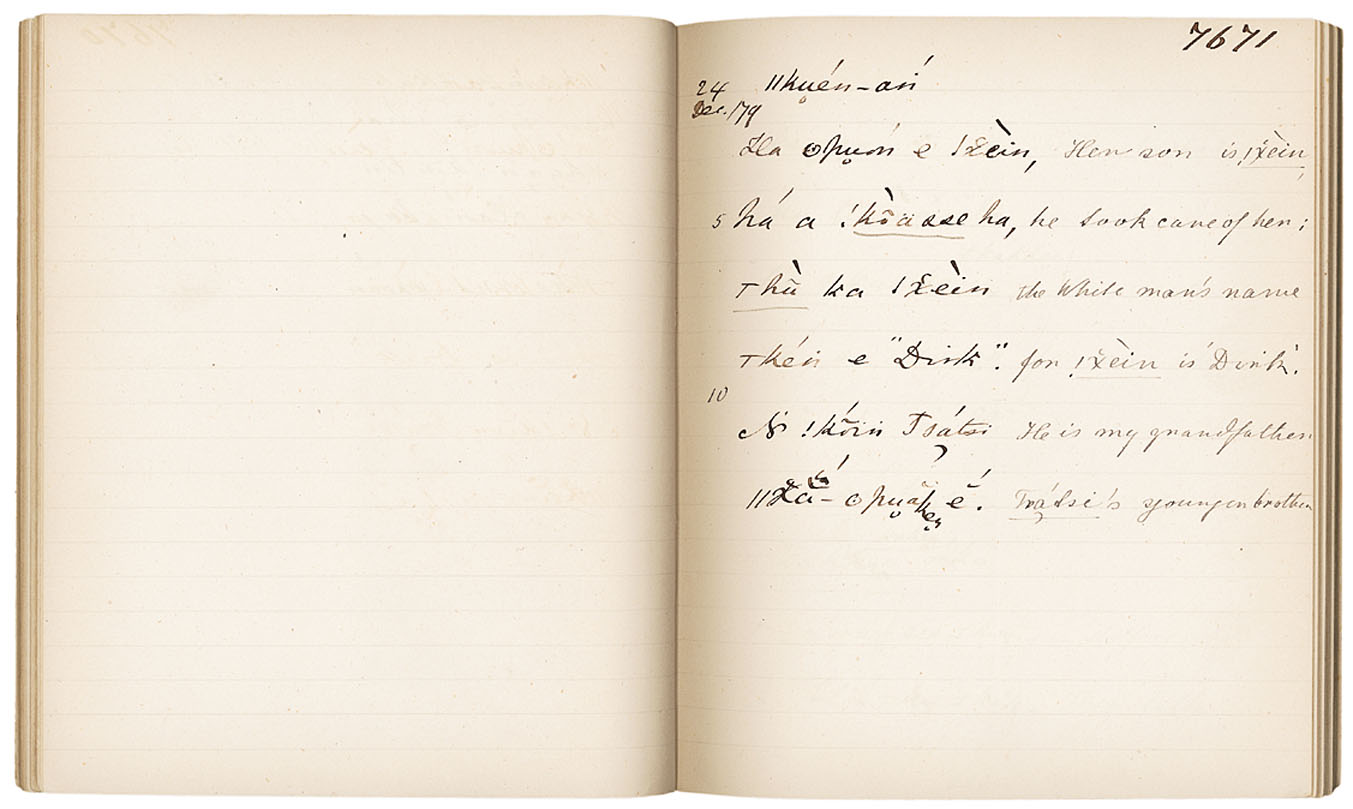 7671
24 ǁku̥én-aṅ́
Dec./79
Ha ʘpu̥oṅ e !x̆èin, Her son is !x̆èin
5 há a !kö̀ä sse ha, he took care of her;
ꞱhṺ ka !x̆èin the White man's name
Ʇkéṅ e "Dirk". for !x̆èin is 'Dirk'.
10
Ṅ !kṍiṅ Tsátsi He is my grandfather
Tsátsi's younger brother